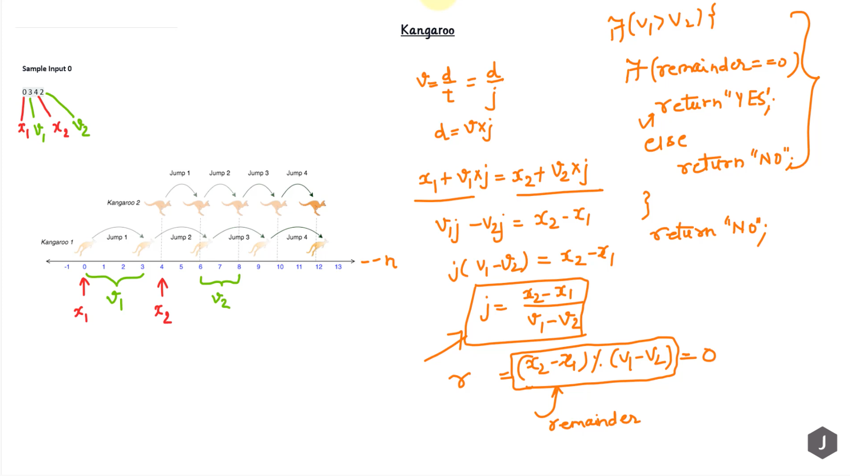 Kangaroo
Sample Input 0
0 3 4 2
x1 v1 x2 v2
Jump 1 Jump 2 Jump 3 Jump 4
Kangaroo 2
Kangaroo 1
Jump 1 Jump 2 Jump 3 Jump 4
-1 0 1 2 3 4 5 6 7 8 9 10 11 12 13 --n
x1 v1 x2 v2
v = d/t = d/j
d = v×j
x1 + v1×j = x2 + v2×j
v1j - v2j = x2 - x1
j(v1-v2) = x2-x1
j = x2-x1 / v1-v2
r = (x2-x1) % (v1-v2) = 0
remainder
if(v1>v2){
if(remainder==0)
return "YES";
else
return "NO";
}
return "NO";
J